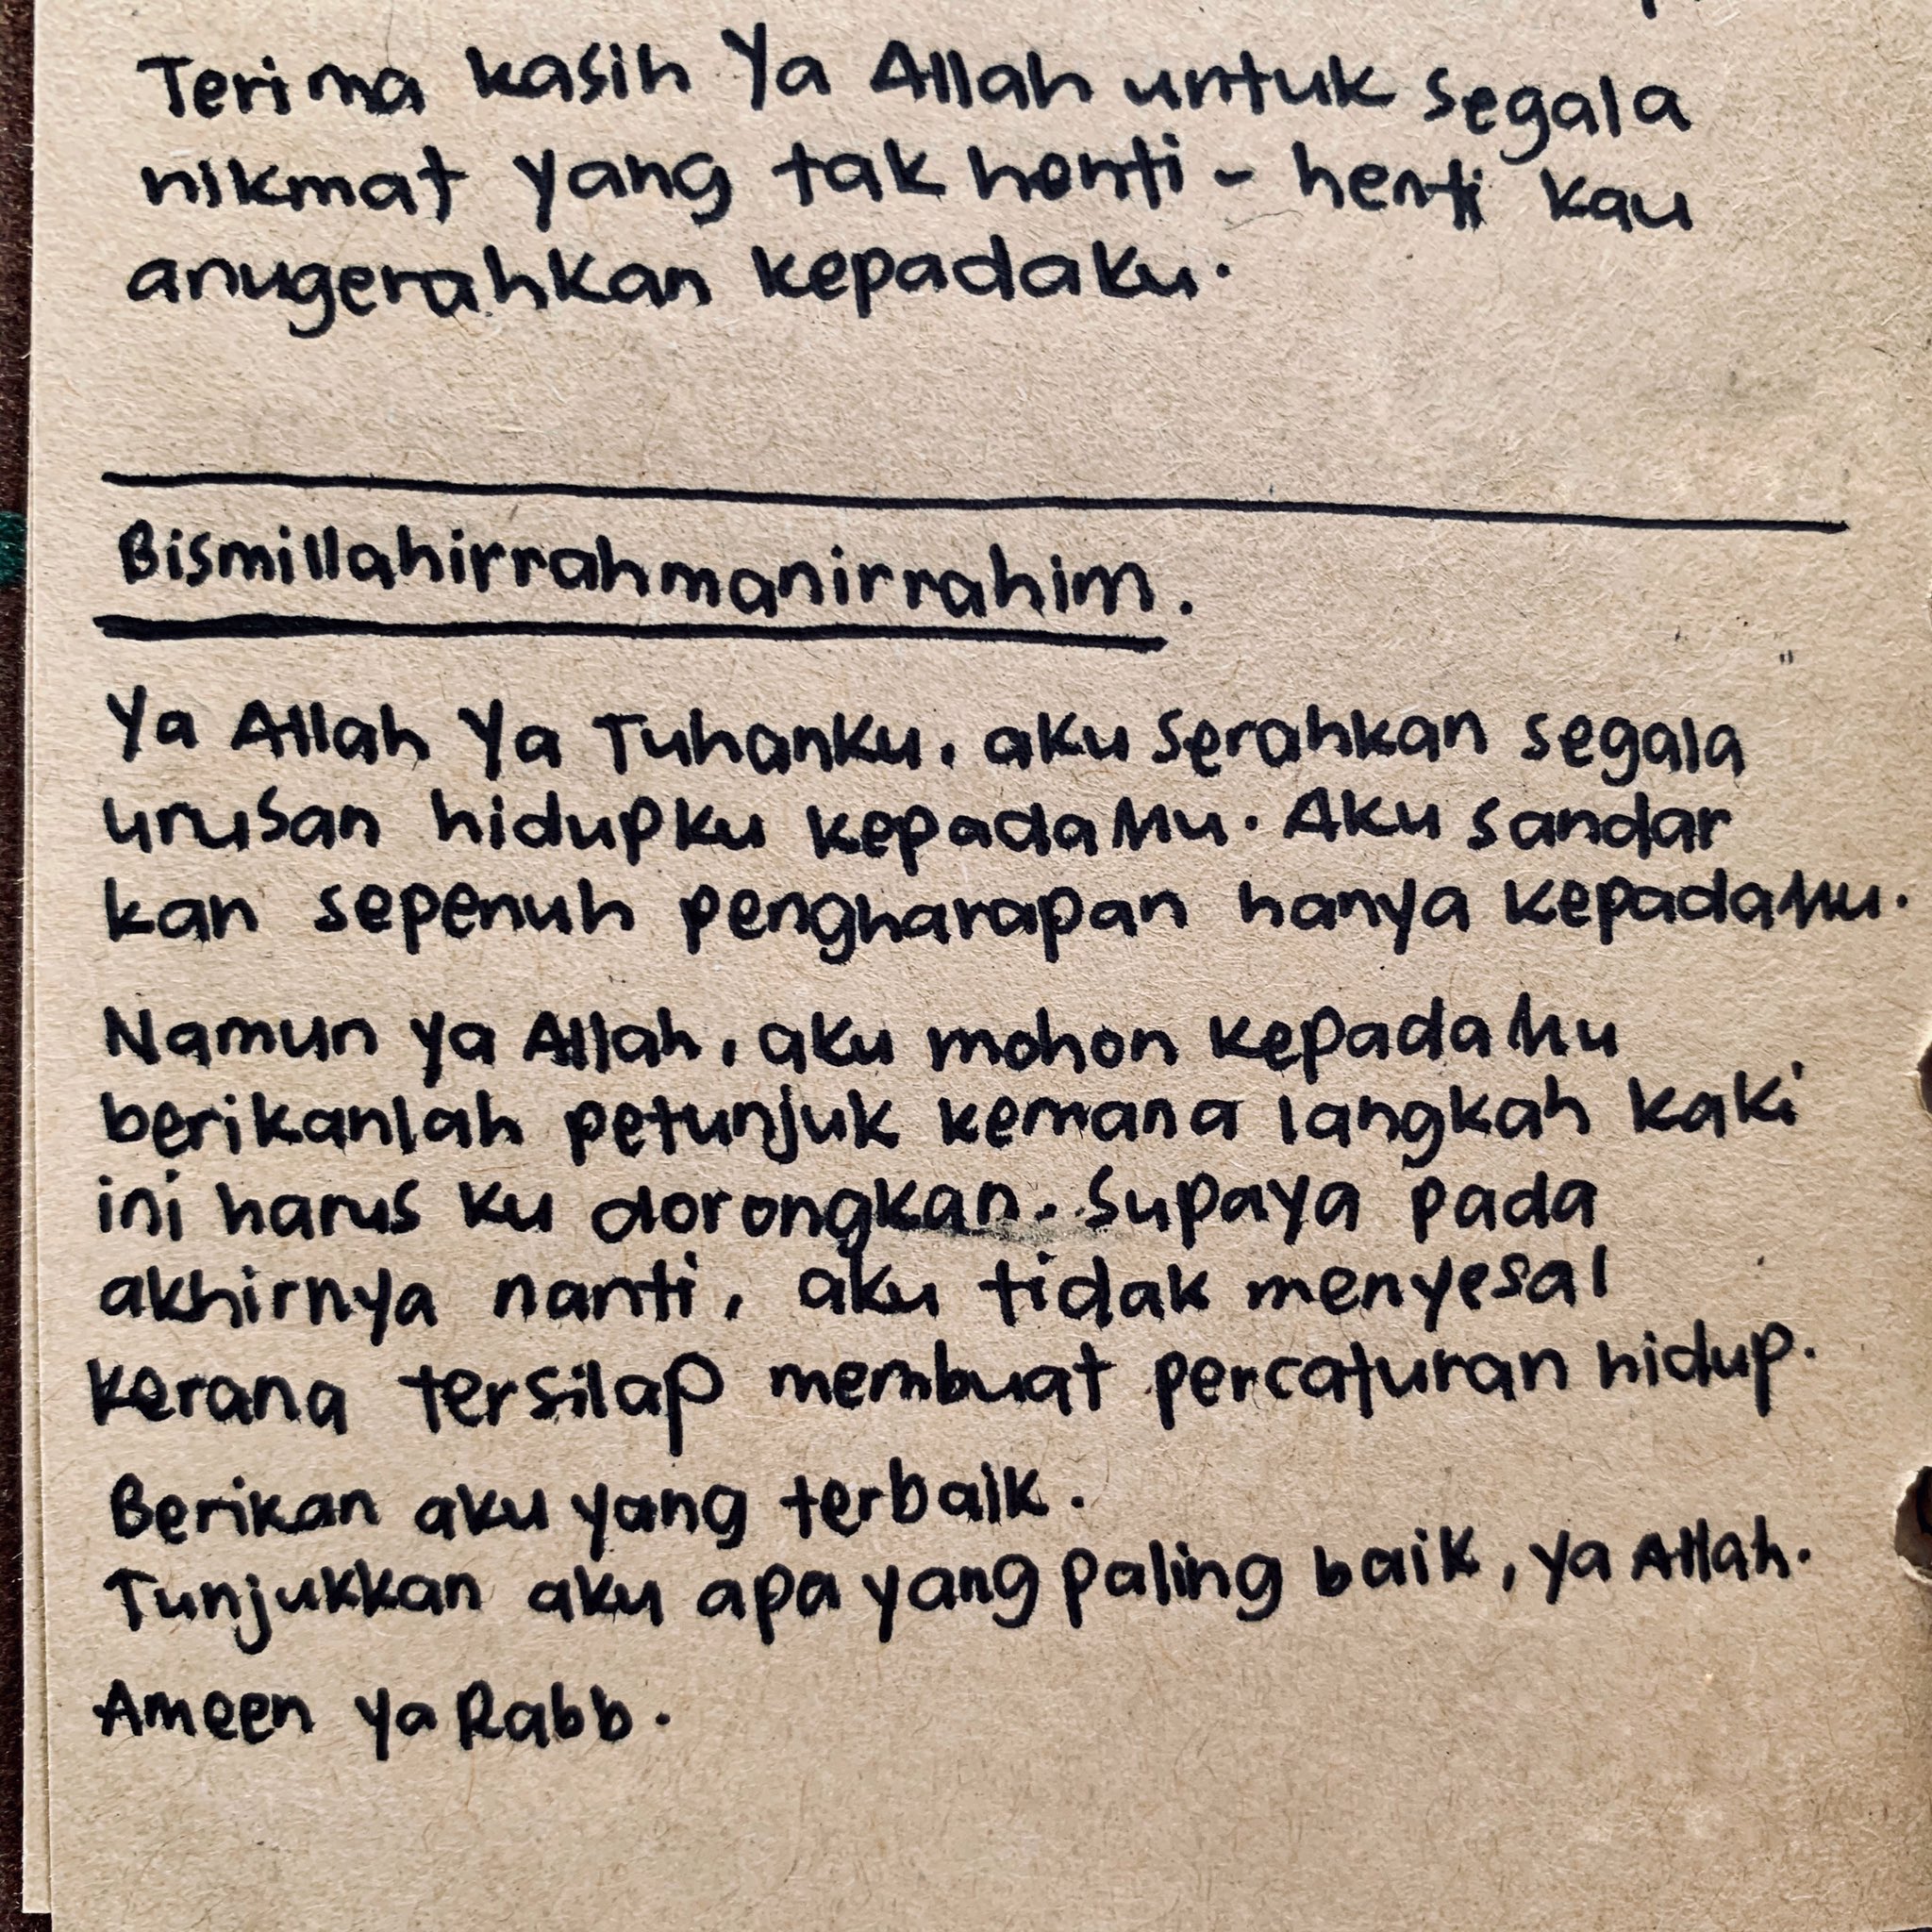 Terima kasih Ya Allah untuk segala
nikmat yang tak henti - henti kau
anugerahkan kepadaku.
Bismillahirrahmanirrahim.
Ya Allah Ya Tuhanku, aku serahkan segala
urusan hidupku kepadaMu. Aku sandar
kan sepenuh pengharapan hanya kepadaMu.
Namun ya Allah, aku mohon kepadaMu
berikanlah petunjuk kemana langkah kaki
ini harus ku dorongkan. Supaya pada
akhirnya nanti, aku tidak menyesal
kerana tersilap membuat percaturan hidup.
Berikan aku yang terbaik.
Tunjukkan aku apa yang paling baik, ya Allah.
Ameen ya Rabb.